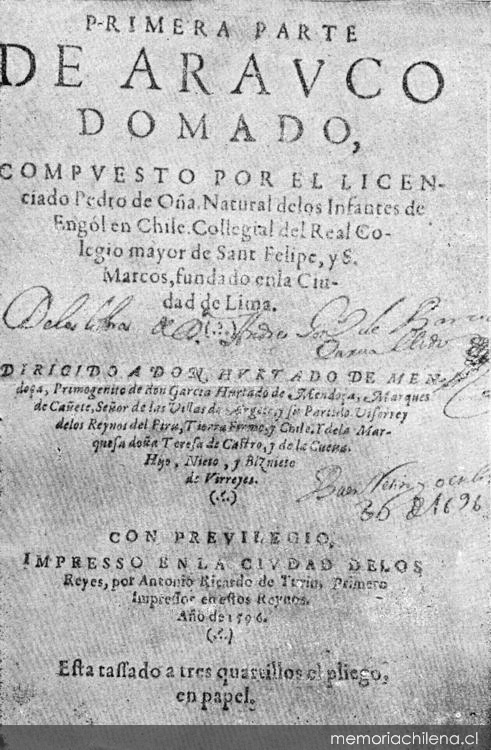 PRIMERA PARTE
DE ARAVCO
DOMADO,
COMPVESTO POR EL LICEN-
ciado Pedro de Oña. Natural delos Infantes de
Engól en Chile. Collegial del Real Co-
legio mayor de Sant Felipe, y S.
Marcos, fundado enla Ciu-
dad de Lima.
(.?.)
De los libros de D. Andres Gonz de Barcia
DIRIGIDO A DON HVRTADO DE MEN-
doça, Primogenito de don Garcia Hurtado de Mendoça, Marques
de Cañete, Señor de las Villas de Argete, y su Partido. Visorrey
delos Reynos del Piru, Tierra Firme, y Chile. Y dela Mar-
quesa doña Teresa de Castro, y dela Cueva.
Hijo, Nieto, y Biznieto
de Virreyes.
(.?.)
CON PREVILEGIO,
IMPRESSO ENLA CIVDAD DELOS
Reyes, por Antonio Ricardo de Turin. Primero
Impressor en estos Reynos.
Año de 1596.
(.?.)
Esta tassado a tres quartillos el pliego,
en papel.
memoriachilena.cl